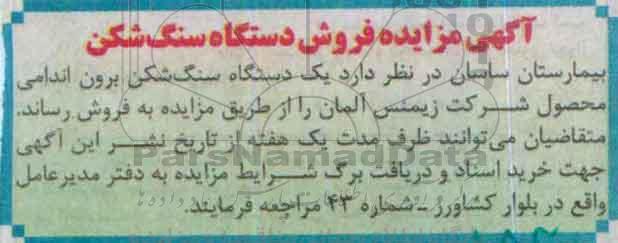 آگهی مزایده فروش دستگاه سنگ‌شکن
بیمارستان ساسان در نظر دارد یک دستگاه سنگ‌شکن برون اندامی
محصول شرکت زیمنس آلمان را از طریق مزایده به فروش رساند.
متقاضیان می‌توانند ظرف مدت یک هفته از تاریخ نشر این آگهی
ParsNamadData
جهت خرید اسناد و دریافت برگ شرایط مزایده به دفتر مدیرعامل
واقع در بلوار کشاورز ـ شماره ۴۳ مراجعه فرمایند.